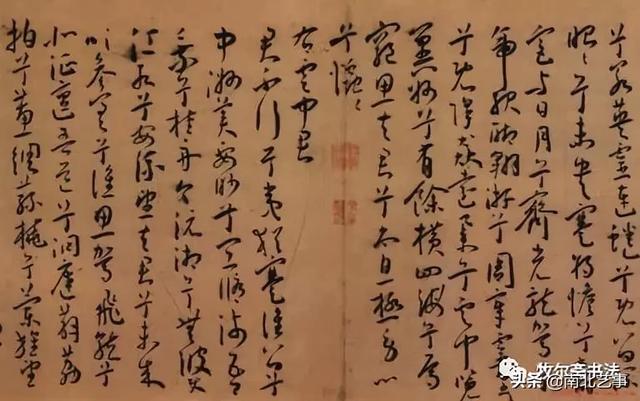 兮若英靈連蜷兮既留爛
昭〻兮未央蹇將憺兮壽
宮與日月兮齊光龍駕兮
帝服聊翱游兮周章靈皇〻
兮既降猋遠舉兮雲中覽
冀州兮有餘橫四海兮焉
窮思夫君兮太息極勞心
兮忡〻
右雲中君
君不行兮夷猶蹇誰留兮
中洲美要眇兮宜脩沛吾
乘兮桂舟令沅湘兮無波使
江水兮安流望夫君兮未來
吹參差兮誰思駕飛龍兮
北征邅吾道兮洞庭薜荔
拍兮蕙綢蓀橈兮蘭旌望
牧尔亭书法
头条@南北艺事